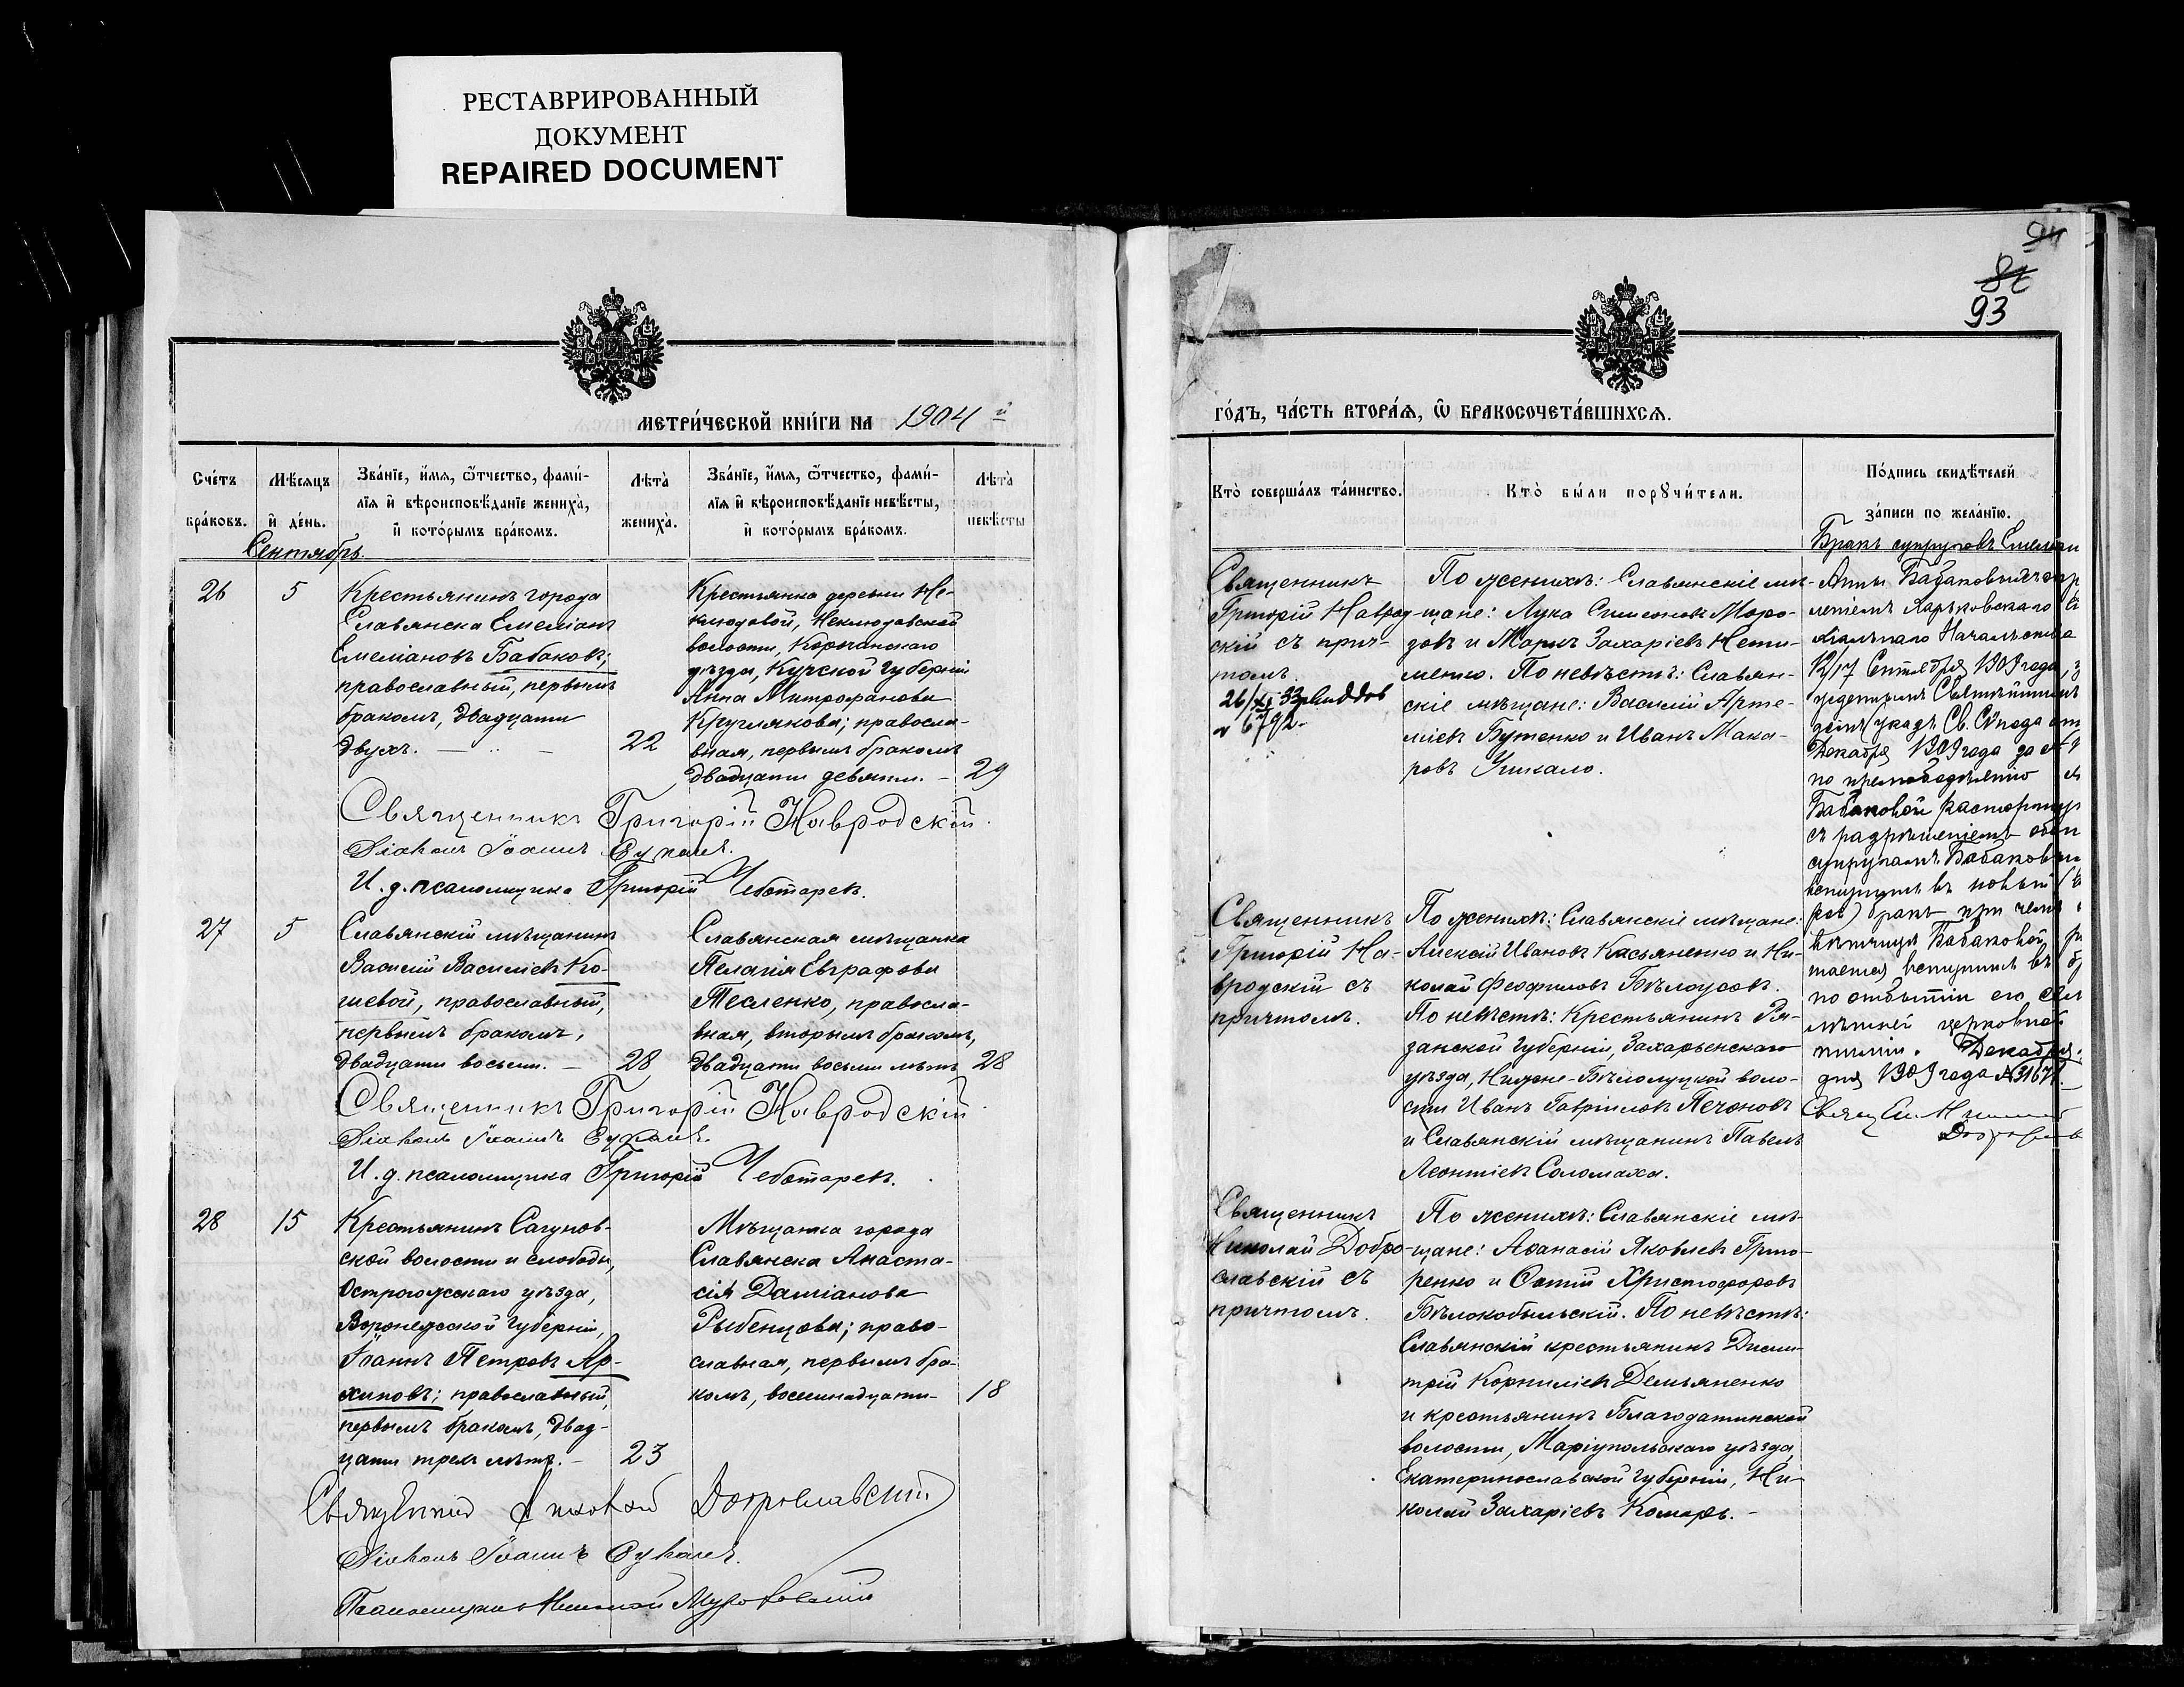 РЕСТАВРИРОВАННЫЙ
ДОКУМЕНТ
REPAIRED DOCUMENT
МЕТРИ́ЧЕСКОЙ КНИ́ГИ НА 1904 й
Сче́тъ
бра́ковъ.
Мѣ́сяцъ
и҆ де́нь.
Зва́нїе, и҆́мя, ѻ҆́тчество, фами́-
лїя и҆ вѣроисповѣ́данїе жениха̀,
и҆ кото́рымъ бра́комъ.
Лѣта̀
жениха̀.
Зва́нїе, и҆́мя, ѻ҆́тчество, фами́-
лїя и҆ вѣроисповѣ́данїе невѣ́сты,
и҆ кото́рымъ бра́комъ.
Лѣта̀
невѣ́сты
Сентябрь.
26
5
Крестьянинъ города
Славянска Емеліанъ
Емеліановъ Бабаковъ;
православный, первымъ
бракомъ, двадцати
двухъ.
22
Крестьянка деревни Не-
клюдовой, Неклюдовской
волости, Корочанскаго
уѣзда, Курской губерніи
Анна Митрофанова
Круглякова; правосла-
вная, первымъ бракомъ
двадцати девяти. –
29
Священникъ Григорій Навродскій.
Діаконъ Іоаннъ
И. д. псаломщика Григорій Чеботаревъ.
27
5
Славянскій мѣщанинъ
Василій Василіевъ Ко-
шевой, православный,
первымъ бракомъ,
двадцати восьми. –
28
Славянская мѣщанка
Пелагія Евграфова
Тесленко, правосла-
вная, вторымъ бракомъ,
двадцати восьми лѣтъ
28
Священникъ Григорій Навродскій.
Діаконъ Іоаннъ
И. д. псаломщика Григорій Чеботаревъ.
28
15
Крестьянинъ Сагунов-
ской волости и слободы,
Острогожскаго уѣзда,
Воронежской губерніи,
Іоаннъ Петровъ Ар-
хиповъ; православный,
первымъ бракомъ, двад-
цати трехъ лѣтъ. –
23
Мѣщанка города
Славянска Анаста-
сія Даміанова
Рыбенцова; право-
славная, первымъ бра-
комъ, восемнадцати
18
Священникъ Николай Доброславскій
Діаконъ Іоаннъ
Псаломщикъ Николай
94
93
ГО́ДЪ, ЧА́СТЬ ВТОРА́Я, Ѽ БРАКОСОЧЕТА́ВШИХСЯ.
Кто̀ соверша́лъ та́инство.
Кто̀ бы́ли порꙋчи́тели.
По́дпись свидѣ́телей
за́писи по жела́нїю.
Священникъ
Григорій Наврод-
скій съ прич-
томъ.
26/XI 33
№ 6792.
По женихѣ: Славянскіе мѣ-
щане: Лука Симеоновъ Моро-
зовъ и Маркъ Захаріевъ Нети-
менко. По невѣстѣ: Славян-
скіе мѣщане: Василій Арте-
міевъ Бутенко и Иванъ Мака-
ровъ Ушкало.
Бракъ супруговъ Емеліан
Анны Бабаковыхъ опр
леніемъ Харьковскаго
хіальнаго Начальства
12/17 Сентября 1909 года,
Святѣйшимъ
указъ Св. Сѵнода от
Декабря 1909 года за №
по прелюбодѣянію
Бабаковой расторгнут
съ разрѣшеніемъ обои
супругамъ Бабаковым
вступить въ новый
бракъ при чемъ
Бабаковой
вступить въ
по отбытіи его сем
лѣтней церковной
Декабря
дня 1909 года № 31671.
Священникъ
Григорій На-
вродскій съ
причтомъ.
По женихѣ: Славянскіе мѣщане:
Алексій Ивановъ Касьяненко и Ни-
колай Феофиловъ Бѣлоусовъ.
По невѣстѣ: Крестьянинъ Ря-
занской губерніи, Захарьенскаго
уѣзда, Нижне-Бѣлолуцкой воло-
сти Иванъ Гавріиловъ Печоновъ
и Славянскій мѣщанинъ Павелъ
Леонтіевъ Соломаха.
Священникъ
Николай Добро-
славскій съ
причтомъ.
По женихѣ: Славянскіе мѣ-
щане: Аѳанасій Яковлевъ Григо-
ренко и Фотій Христофоровъ
Бѣлокобыльскій. По невѣстѣ:
Славянскій крестьянинъ Дими-
трій Корниліевъ Демьяненко
и крестьянинъ Благодатинской
волости, Маріупольскаго уѣзда
Екатеринославской губерніи, Ни-
колай Захаріевъ Комарь. –